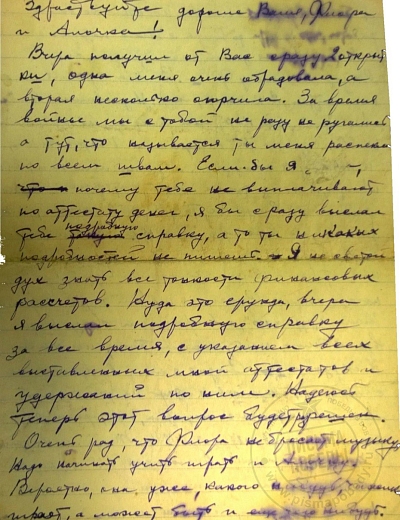 Здравствуйте дорогие Ваня, Флора
и Алочка!
Вчера получил от Вас сразу 2 открыт
ки, одна меня очень обрадовала, а
вторая несколько огорчила. За время
войны мы с тобой ни разу не ругались
а тут, что называется ты меня распекла
по всем швам. Если-бы я
почему тебе не выплачивают
по аттестату денег, я бы сразу выслал
тебе подробную справку, а то ты никаких
подробностей не пишешь. Я не святой
дух знать все тонкости финансовых
рассчетов. Куда это нужда, вчера
я выслал подробную справку
за все время, с указанием всех
выставленных мной аттестатов и
удержаний по ним. Надеюсь
теперь этот вопрос будет решен.
Очень рад что Флора не бросает музыку
Надо начинать учить играть и Алочку.
она уже,
а может быть и